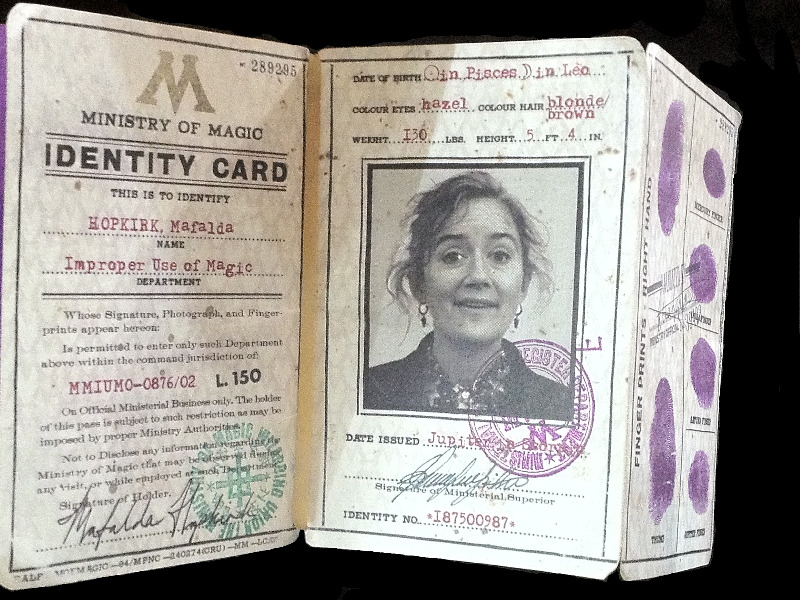 Nº 289295
M
MINISTRY OF MAGIC
IDENTITY CARD
THIS IS TO IDENTIFY
HOPKIRK, Mafalda
NAME
Improper Use of Magic
DEPARTMENT
Whose Signature, Photograph, and Finger-
prints appear hereon:
Is permitted to enter only such Department
above within the command jurisdiction of:
MMIUMO-0876/02 L.150
On Official Ministerial Business only. The holder
of this pass is subject to such restriction as may be
imposed by proper Ministry Authorities.
Not to Disclose any information regarding the
Ministry of Magic that may be observed during
any visit, or while employed at such Department
Signature of Holder.
Mafalda Hopkirk
DATE OF BIRTH in Pisces, in Leo
COLOUR EYES hazel COLOUR HAIR blonde/
brown
WEIGHT 130 LBS. HEIGHT 5 FT 4 IN.
DATE ISSUED Jupiter
Signature of Ministerial Superior
IDENTITY NO. *187500987*
FINGER PRINTS RIGHT HAND